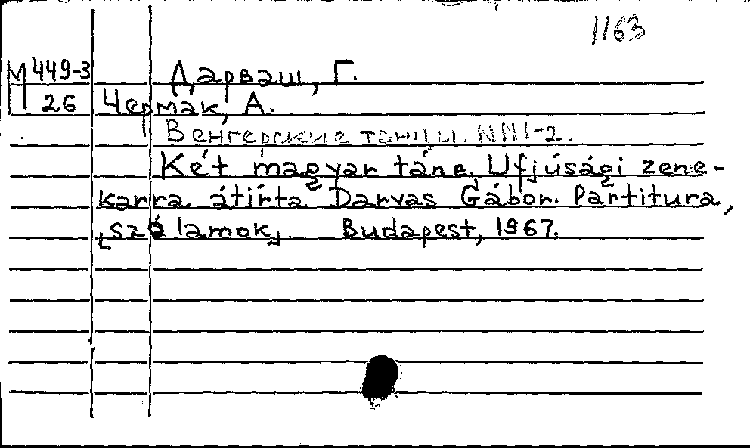 1163
М 449-3 Дарваш, Г.
26 Чермак, А.
Венгерские танцы. NN1-2.
Két magyar tánc. Ufjúsági zene-
karra átírta Darvas Gábor. Partitura,
szólamok Budapest, 1967.